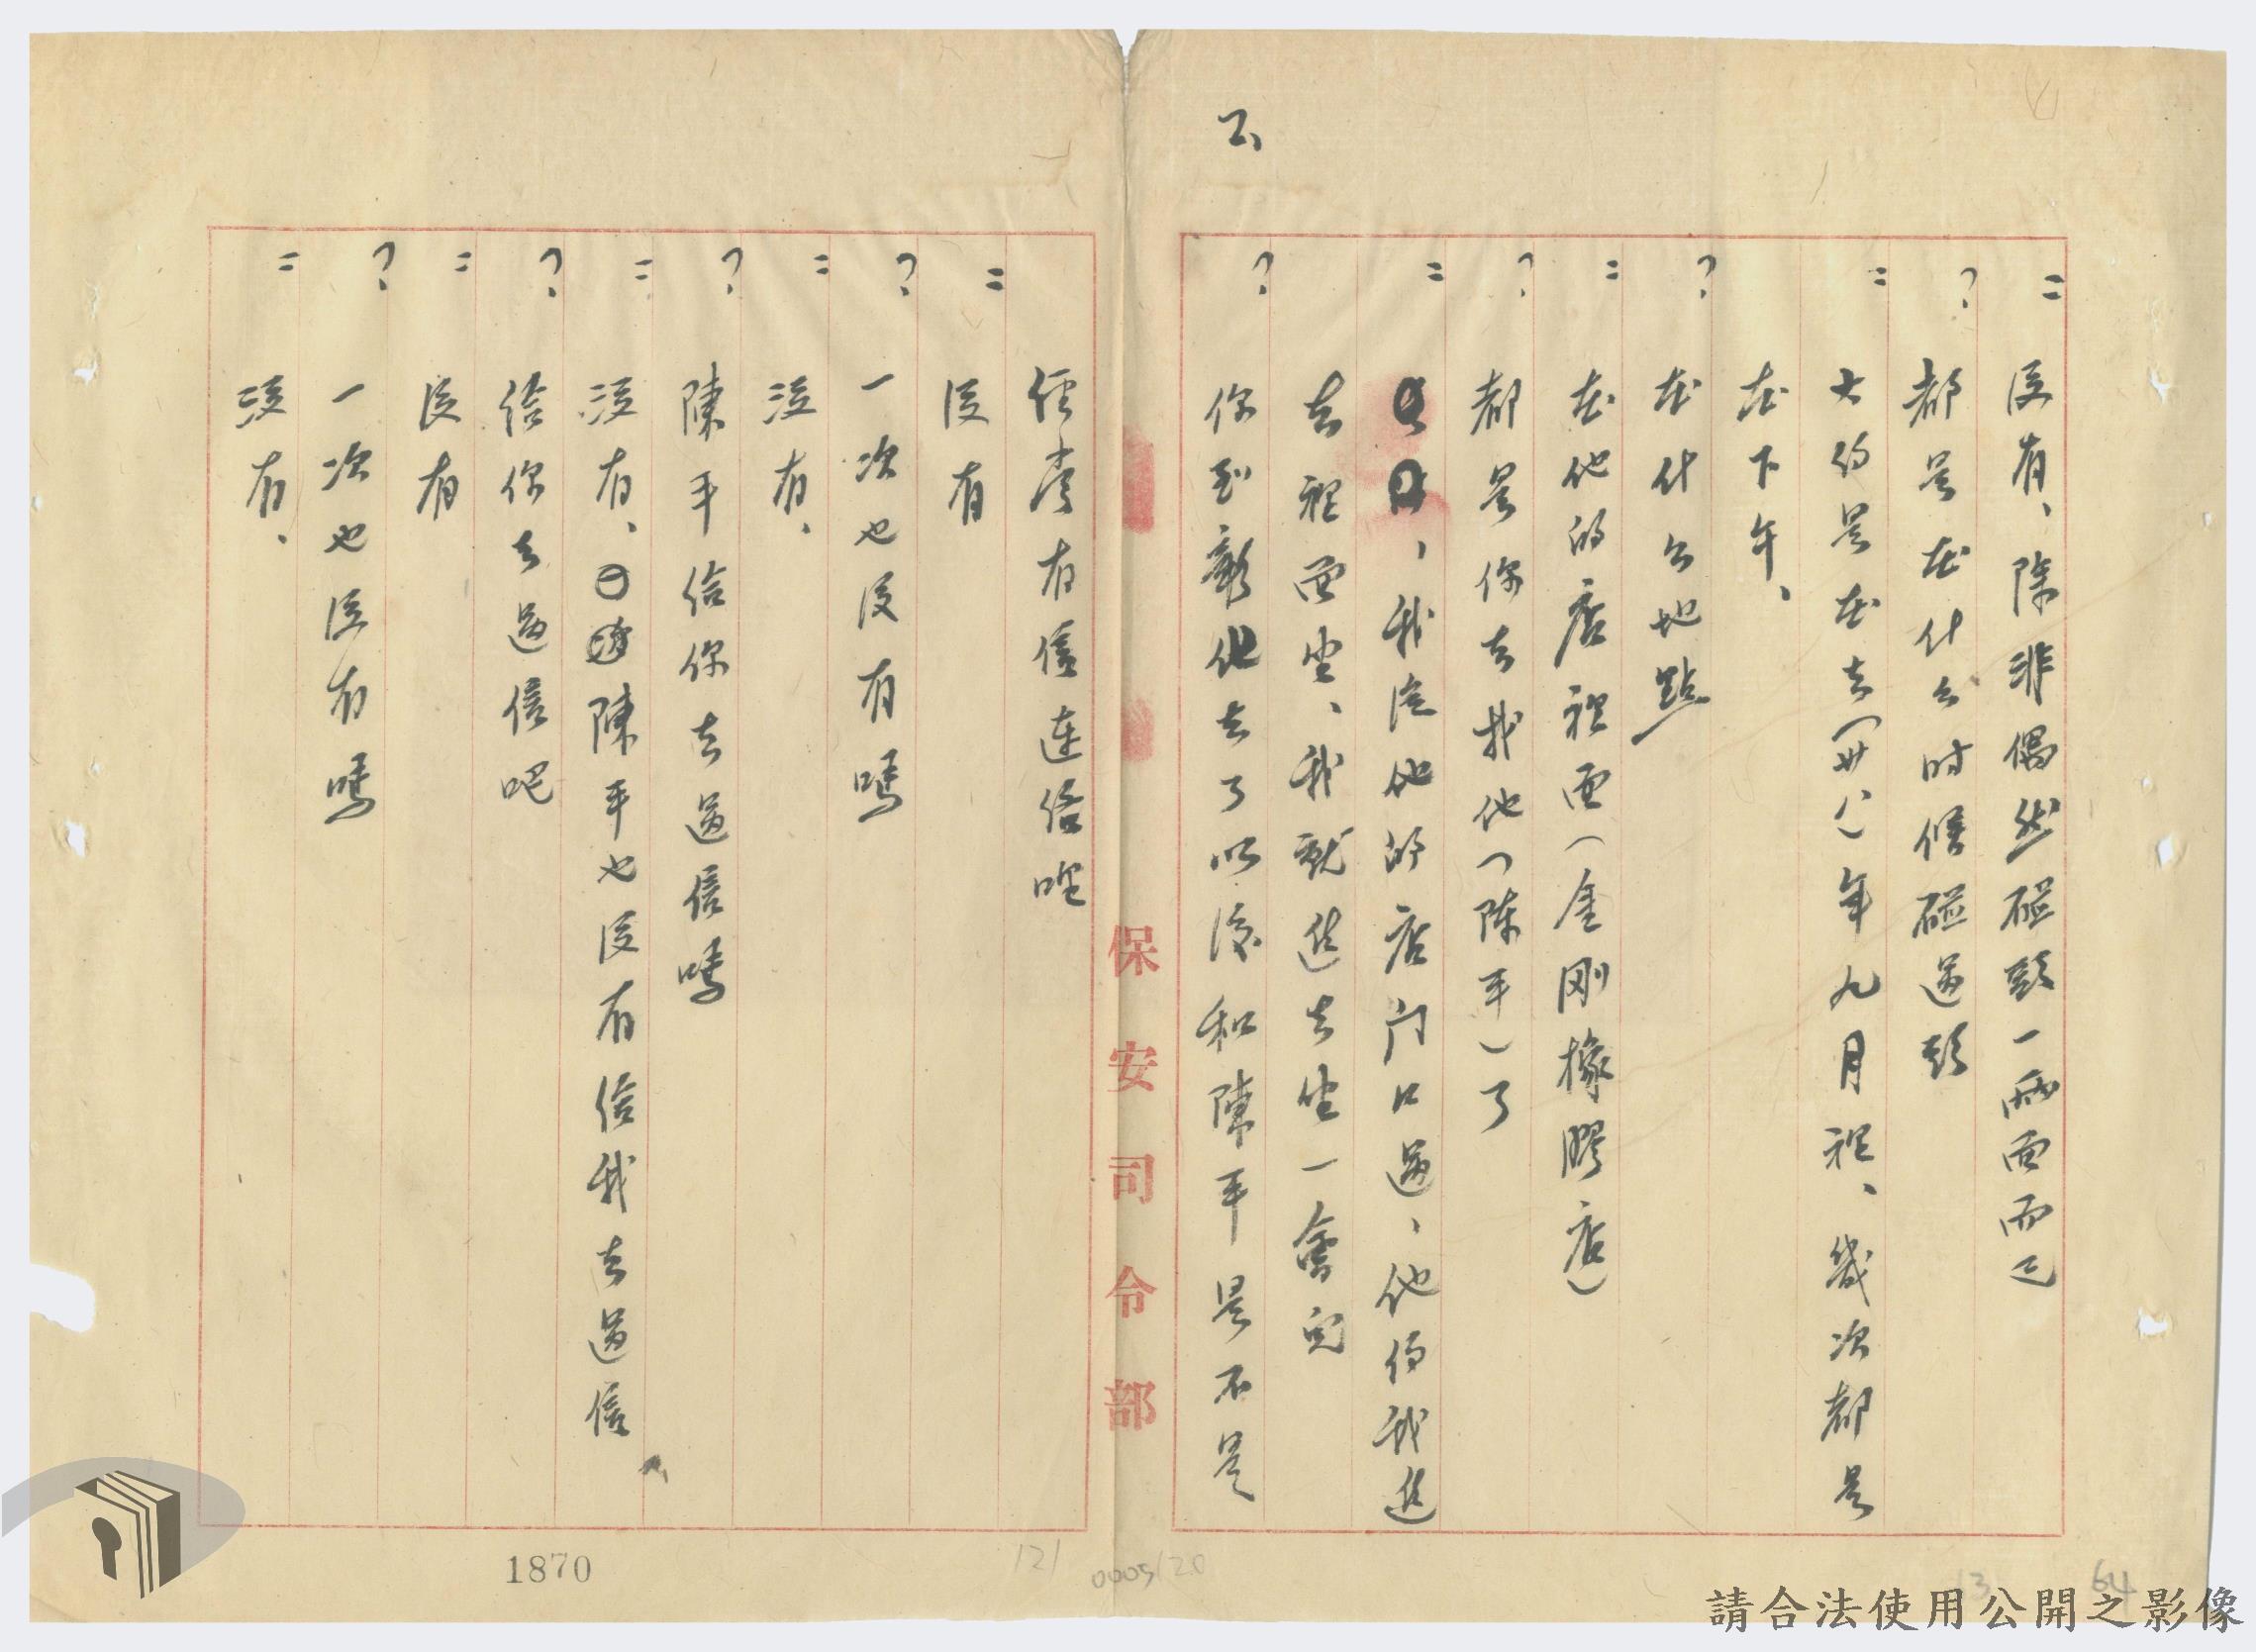 五
= 沒有、除非偶然碰頭一兩面而已
? 都是在什么时候碰過頭
= 大約是在去(卅八)年九月裡、幾次都是
在下午、
? 在什么地點
= 在他的店裡面(金刚橡膠店)
? 都是你去找他(陳平)了
= 、我從他的店门口過、他約我進
去裡面坐、我就進去坐一會兒
? 你到彰化去了以後和陳平是不是
經常有信連络呢
= 沒有
? 一次也沒有嗎
= 沒有、
? 陳平给你去過信嗎
= 沒有、陳平也沒有给我去過信
? 给你去過信吧
= 沒有
? 一次也沒有嗎
= 沒有、
保安司令部
1870
121
0005120
13
64
請合法使用公開之影像